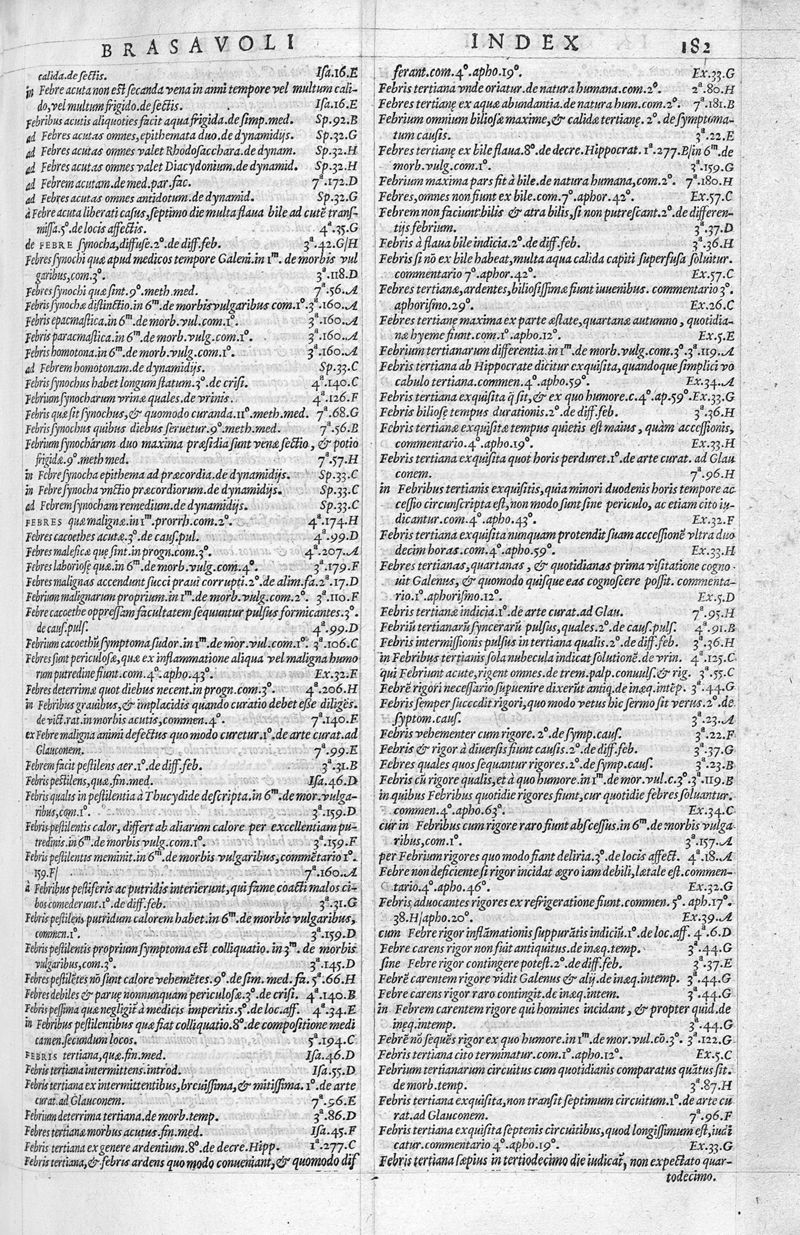 BRASAVOLI
calida.de sectis. Isa.16.E
in Febre acuta non est secanda vena in anni tempore vel multum cali-
do, vel multum frigido.de sectis. Isa.16.E
Febribus acutis aliquoties facit aqua frigida.de simp.med. Sp.92.B
ad Febres acutas omnes, epithemata duo.de dynamidijs. Sp.32.G
ad Febres acutas omnes valet Rhodosacchara.de dynam. Sp.32.H
ad Febres acutas omnes valet Diacydonium.de dynamid. Sp.32.H
ad Febrem acutam.de med.par.fac. 7ª.172.D
ad Febres acutas omnes antidotum.de dynamid. Sp.32.G
à Febre acuta liberati casus, septimo die multa flaua bile ad cutē trans-
missa.5º.de locis affectis. 4ª.35.G
de FEBRE synocha, diffuse.2º.de diff.feb. 3ª.42.G/H
Febres synochi quæ apud medicos tempore Galeni.in 1ᵐ. de morbis vul
garibus, com.3º. 3ª.118.D
Febres synochi quæ sint.9º.meth.med. 7ª.56.A
Febris synochæ distinctio.in 6ᵐ.de morbis vulgaribus com.1º. 3ª.160.A
Febris epacmastica.in 6ᵐ.de morb.vul.com.1º. 3ª.160.A
Febris paracmastica.in 6ᵐ.de morb.vulg.com.1º. 3ª.160.A
Febris homotona.in 6ᵐ.de morb.vulg.com.1º. 3ª.160.A
ad Febrem homotonam.de dynamidijs. Sp.33.C
Febris synochus habet longum statum.3º.de crisi. 4ª.140.C
Febrium synocharum vrinæ quales.de vrinis. 4ª.126.F
Febris quæ sit synochus, & quomodo curanda.11º.meth.med. 7ª.68.G
Febris synochus quibus diebus seruetur.9º.meth.med. 7ª.56.B
Febrium synocharum duo maxima præsidia sunt venæ sectio, & potio
frigidæ.9º.meth med. 7ª.57.H
in Febre synocha epithema ad præcordia.de dynamidijs. Sp.33.C
in Febre synocha vnctio præcordiorum.de dynamidijs. Sp.33.C
ad Febrem synocham remedium.de dynamidijs. Sp.33.C
FEBRES quæ malignæ.in 1ᵐ.prorrh.com.2º. 4ª.174.H
Febres cacoethes acutæ.3º.de caus.pul. 4ª.99.D
Febres maleficæ quę sint.in progn.com.3º. 4ª.207.A
Febres laboriosę quæ.in 6ᵐ.de morb.vulg.com.4º. 3ª.179.F
Febres malignas accendunt succi praui corrupti.2º.de alim.fa. 2ª.17.D
Febrium malignarum proprium.in 1ᵐ.de morb.vulg.com.2º. 3ª.110.F
Febre cacoethe oppressam facultatem sequuntur pulsus formicantes.3º.
de caus.puls. 4ª.99.D
Febrium cacoethū symptoma sudor.in 1ᵐ.de mor.vul.com.1º. 3ª.106.C
Febres sunt periculosæ, quæ ex inflammatione aliqua vel maligna humo
rum putredine fiunt.com.4º.apho.43º. Ex.32.F
Febres deterrimæ quot diebus necent.in progn.com.3º. 4ª.206.H
in Febribus grauibus, & implacidis quando curatio debet esse diligēs.
de vict.rat.in morbis acutis, commen.4º. 7ª.140.E
ex Febre maligna animi defectus quo modo curetur.1º.de arte curat.ad
Glauconem. 7ª.99.E
Febrem facit pestilens aer.1º.de diff.feb. 3ª.31.B
Febris pestilens, quæ.fin.med. Isa.46.D
Febris qualis in pestilentia à Thucydide descripta.in 6ᵐ.de mor.vulga-
ribus, com.1º. 3ª.159.D
Febris pestilentis calor, differt ab aliarum calore per excellentiam pu-
tredinis.in 6ᵐ.de morbis vulg.com.1º. 3ª.159.F
Febris pestilentis meminit.in 6ᵐ.de morbis vulgaribus, commētario 1º.
159.F/ 7ª.160.A
à Febribus pestiferis ac putridis interierunt, qui fame coacti malos ci-
bos comederunt.1º.de diff.feb. 3ª.31.G
Febris pestilens putridum calorem habet.in 6ᵐ.de morbis vulgaribus,
commen.1º. 3ª.159.D
Febris pestilentis proprium symptoma est colliquatio.in 3ᵐ.de morbis
vulgaribus, com.3º. 3ª.145.D
Febres pestilētes nō sunt calore vehemētes.9º.de sim.med.fa. 5ª.66.H
Febres debiles & paruę nonnunquam periculosæ.3º.de crisi. 4ª.140.B
Febris pessima quæ negligit̄ à medicis imperitis.5º.de loc.aff. 4ª.34.E
in Febribus pestilentibus quæ fiat colliquatio.8º.de compositione medi
camen.secundum locos. 5ª.194.C
FEBRIS tertiana, quæ.fin.med. Isa.46.D
Febris tertiana intermittens.introd. Isa.55.D
Febris tertiana ex intermittentibus, breuissima, & mitissima.1º.de arte
curat.ad Glauconem. 7ª.96.E
Febrium deterrima tertiana.de morb.temp. 3ª.86.D
Febres tertianæ morbus acutus.fin.med. Isa.45.F
Febris tertiana ex genere ardentium.8º.de decre.Hipp. 1ª.277.C
Febris tertiana, & febris ardens quo modo conueniant, & quomodo dif
INDEX 182
ferant.com.4º.apho.19º. Ex.33.G
Febris tertiana vnde oriatur.de natura humana.com.2º. 2ª.80.H
Febres tertianę ex aquæ abundantia.de natura hum.com.2º. 7ª.181.B
Febrium omnium biliosæ maxime, & calidæ tertianę.2º.de symptoma-
tum causis. 3ª.22.E
Febres tertianę ex bile flaua.8º.de decre.Hippocrat.1ª.277.B/in 6ᵐ.de
morb.vulg.com.1º. 3ª.159.G
Febrium maxima pars fit à bile.de natura humana, com.2º. 7ª.180.H
Febres, omnes non fiunt ex bile.com.7º.aphor.42º. Ex.57.C
Febrem non faciunt bilis & atra bilis, si non putrescant.2º.de differen-
tijs febrium. 3ª.37.D
Febris à flaua bile indicia.2º.de diff.feb. 3ª.36.H
Febris si nō ex bile habeat, multa aqua calida capiti superfusa soluitur.
commentario 7º.aphor.42º. Ex.57.C
Febres tertianæ, ardentes, biliosissimæ fiunt iuuenibus. commentario 3º.
aphorismo.29º. Ex.26.C
Febres tertianę maxima ex parte æstate, quartanæ autumno, quotidia-
næ hyeme fiunt.com.1º.apho.12º. Ex.5.E
Febrium tertianarum differentia.in 1ᵐ.de morb.vulg.com.3º. 3ª.119.A
Febris tertiana ab Hippocrate dicitur exquisita, quandoque simplici vo
cabulo tertiana.commen.4º.apho.59º. Ex.34.A
Febris tertiana exquisita q̄ sit, & ex quo humore.c.4º.ap.59º. Ex.33.G
Febris biliosę tempus durationis.2º.de diff.feb. 3ª.36.H
Febris tertianæ exquisitæ tempus quietis est maius, quàm accessionis,
commentario.4º.apho.19º. Ex.33.H
Febris tertiana exquisita quot horis perduret.1º.de arte curat. ad Glau
conem. 7ª.96.H
in Febribus tertianis exquisitis, quia minori duodenis horis tempore ac
cessio circunscripta est, non modo sunt sine periculo, ac etiam cito iu-
dicantur.com.4º.apho.43º. Ex.32.F
Febris tertiana exquisita nunquam protendit suam accessionē vltra duo
decim horas.com.4º.apho.59º. Ex.33.H
Febres tertianas, quartanas, & quotidianas prima visitatione cogno-
uit Galenus, & quomodo quisque eas cognoscere possit. commenta-
rio.1º.aphorismo.12º. Ex.5.D
Febris tertianæ indicia.1º.de arte curat.ad Glau. 7ª.95.H
Febriū tertianarū synceraū pulsus, quales.2º.de caus.puls. 4ª.91.B
Febris intermissionis pulsus in tertiana qualis.2º.de diff.feb. 3ª.36.H
in Febribus tertianis sola nubecula indicat solutionē.de vrin. 4ª.125.C
qui Febriunt acute, rigent omnes.de trem.palp.conuuls.& rig. 3ª.55.C
Febrē rigori necessario superuenire dixerūt antiq.de inæq.intēp. 3ª.44.G
Febris semper succedit rigori, quo modo vetus hic sermo sit verus.2º.de
symptom.caus. 3ª.23.A
Febris vehementer cum rigore.2º.de symp.caus. 3ª.22.F
Febris & rigor à diuersis fiunt causis.2º.de diff.feb. 3ª.37.G
Febres quales quos sequantur rigores.2º.de symp.caus. 3ª.23.B
Febris cū rigore qualis, et à quo humore.in 1ᵐ.de mor.vul.c.3º. 3ª.119.B
in quibus Febribus quotidie rigores fiunt, cur quotidie febres soluantur.
commen.4º.apho.63º. Ex.34.C
cur in Febribus cum rigore raro fiunt abscessus.in 6ᵐ.de morbis vulga-
ribus, com.1º. 3ª.157.A
per Febrium rigores quo modo fiant deliria.3º.de locis affect. 4ª.18.A
Febre non deficiente si rigor incidat ægro iam debili, lætale est.commen-
tario.4º.apho.46º. Ex.32.G
Febris, aduocantes rigores ex refrigeratione fiunt.commen.5º.aph.17º.
38.H/apho.20º. Ex.39.A
cum Febre rigor inflāmationis suppurātis indiciū.1º.de loc.aff. 4ª.6.D
Febre carens rigor non fuit antiquitus.de inæq.temp. 3ª.44.G
sine Febre rigor contingere potest.2º.de diff.feb. 3ª.37.E
Febrē carentem rigore vidit Galenus & alij.de inæq.intemp. 3ª.44.G
Febre carens rigor raro contingit.de inæq.intem. 3ª.44.G
in Febrem carentem rigore qui homines incidant, & propter quid.de
inęq.intemp. 3ª.44.G
Febrē nō sequēs rigor ex quo humore.in 1ᵐ.de mor.vul.cō.3º. 3ª.122.G
Febris tertiana cito terminatur.com.1º.apho.12º. Ex.5.C
Febrium tertianarum circuitus cum quotidianis comparatus quātus sit.
de morb.temp. 3ª.87.H
Febris tertiana exquisita, non transit septimum circuitum.1º.de arte cu
rat.ad Glauconem. 7ª.96.F
Febris tertiana exquisita septenis circuitibus, quod longissimum est, iudi
catur.commentario 4º.apho.19º. Ex.33.G
Febris tertiana sæpius in tertiodecimo die iudicat̄, non expectato quar-
todecimo.